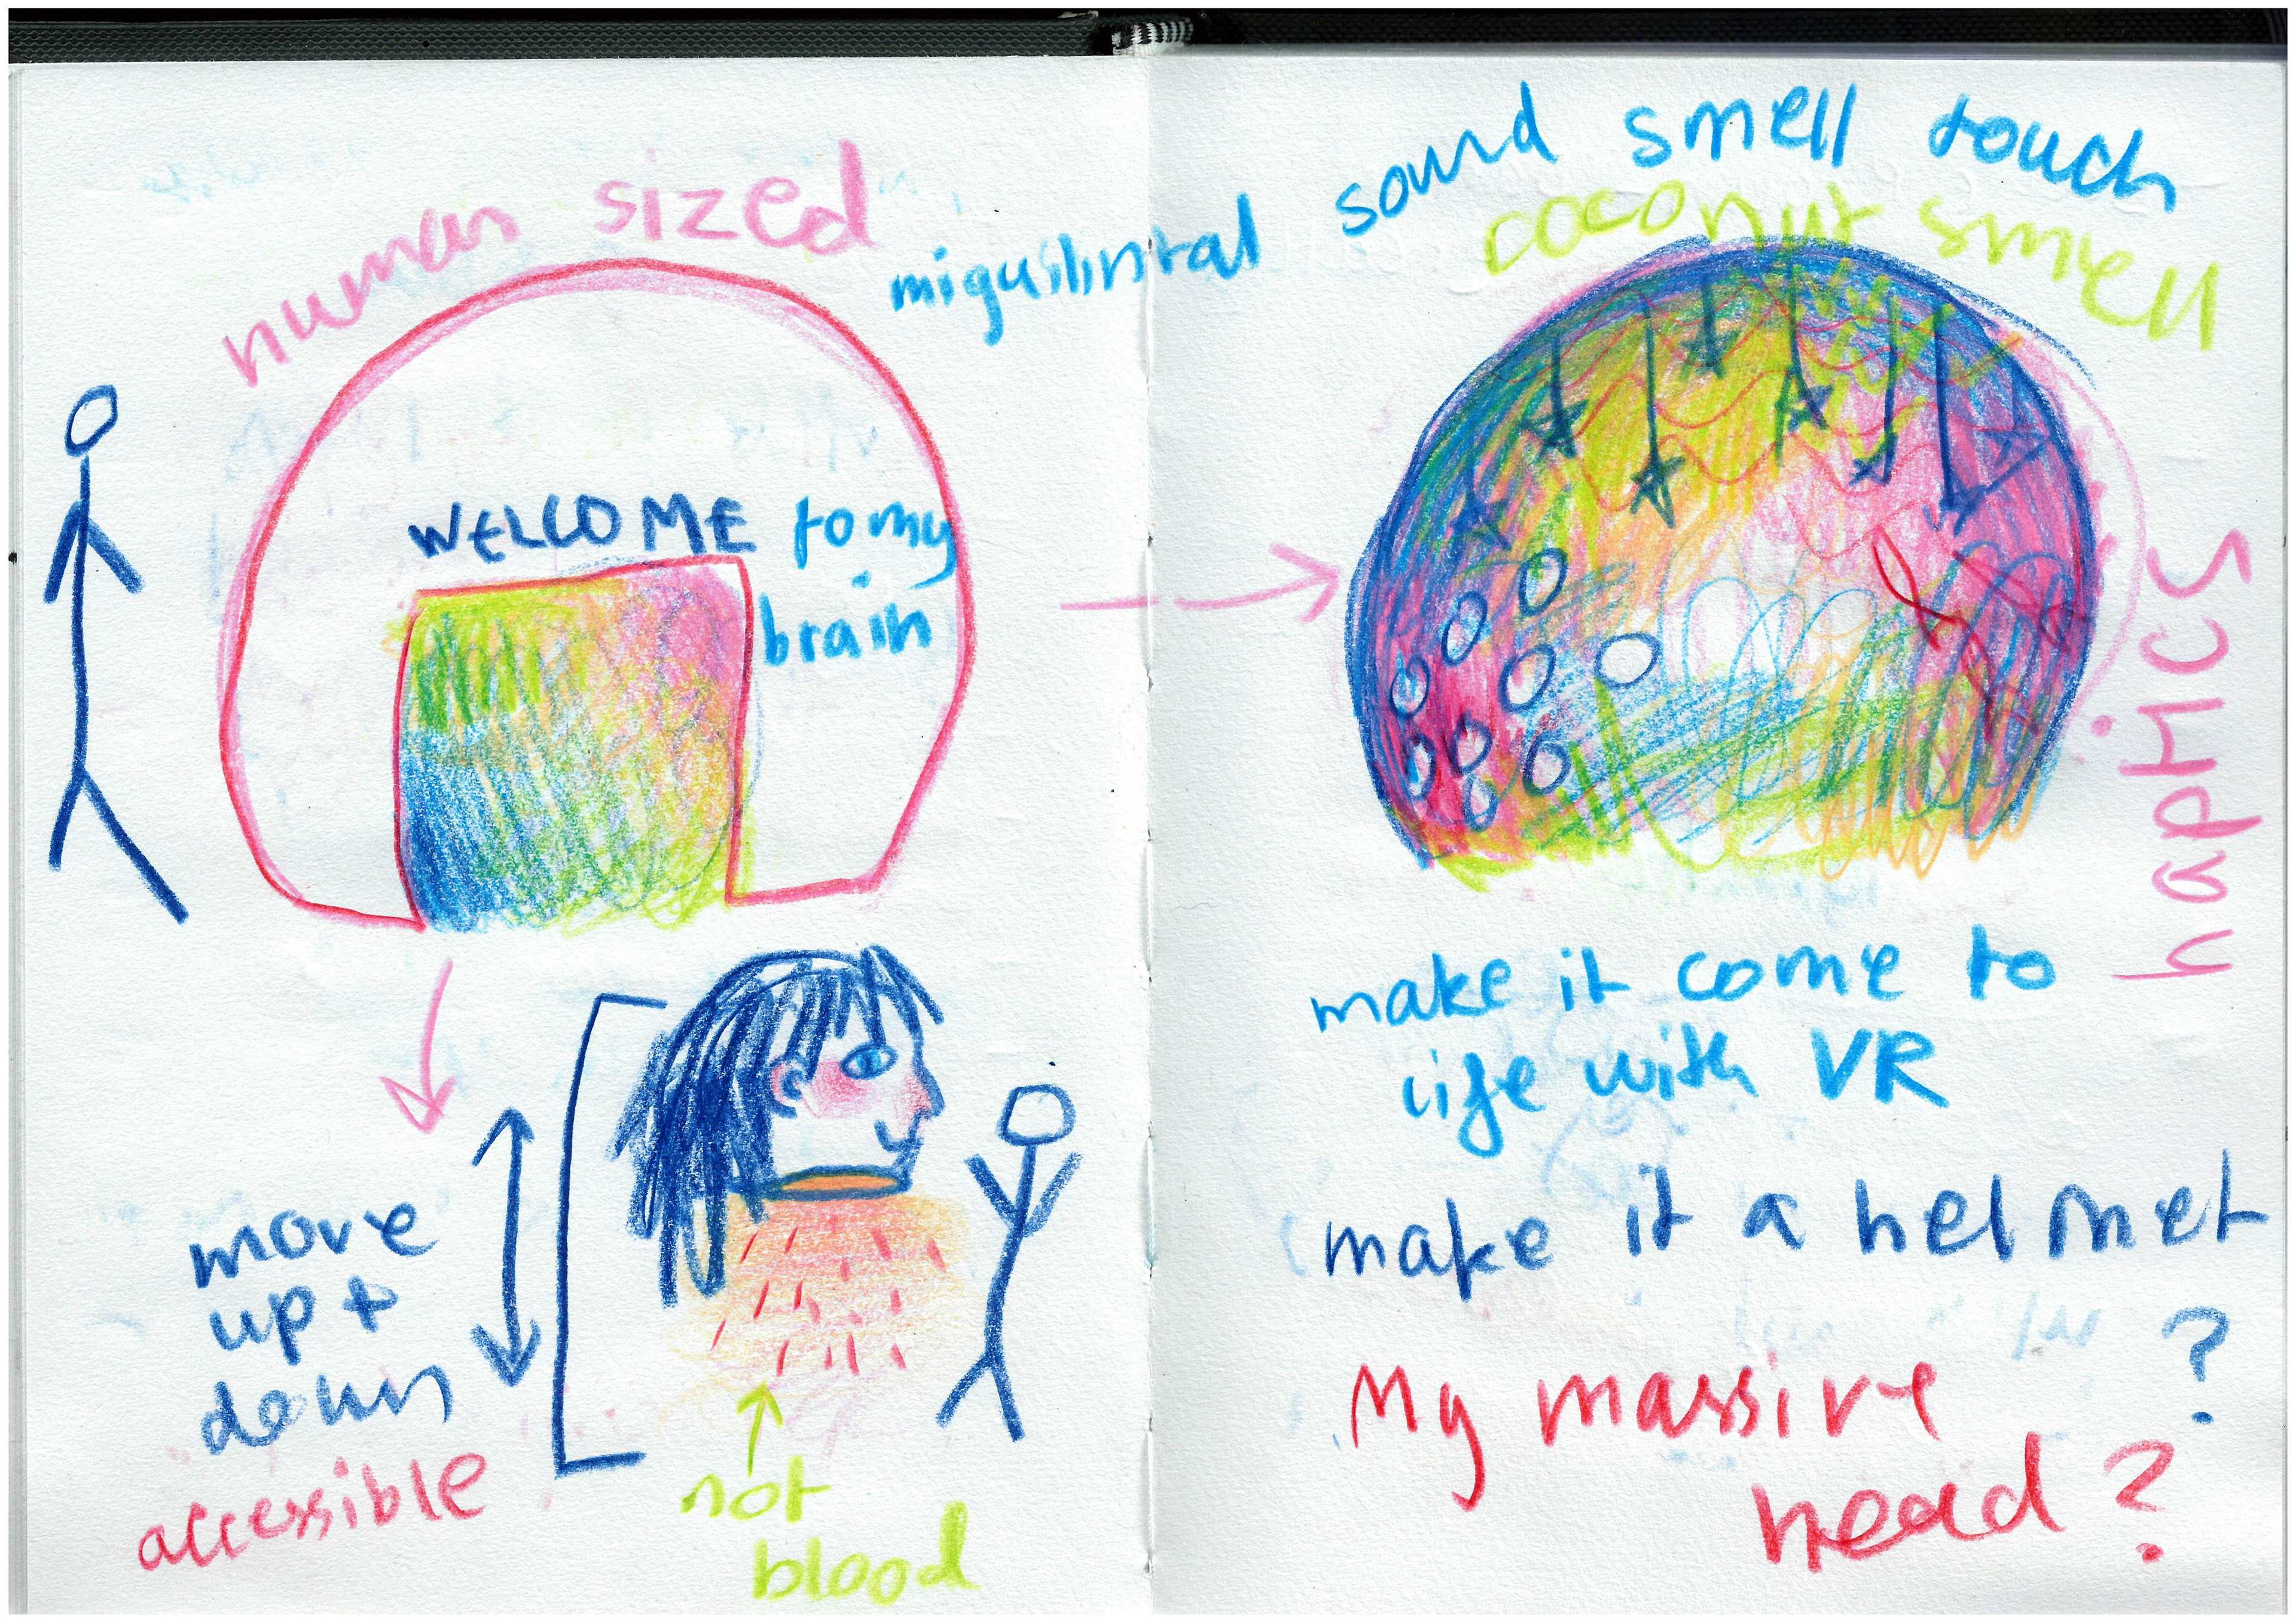 human sized
WELCOME to my
brain
move
up +
down
accessible
not
blood
sound smell touch
coconut smell
haptics
make it come to
life with VR
make it a helmet
?
My massive
head?